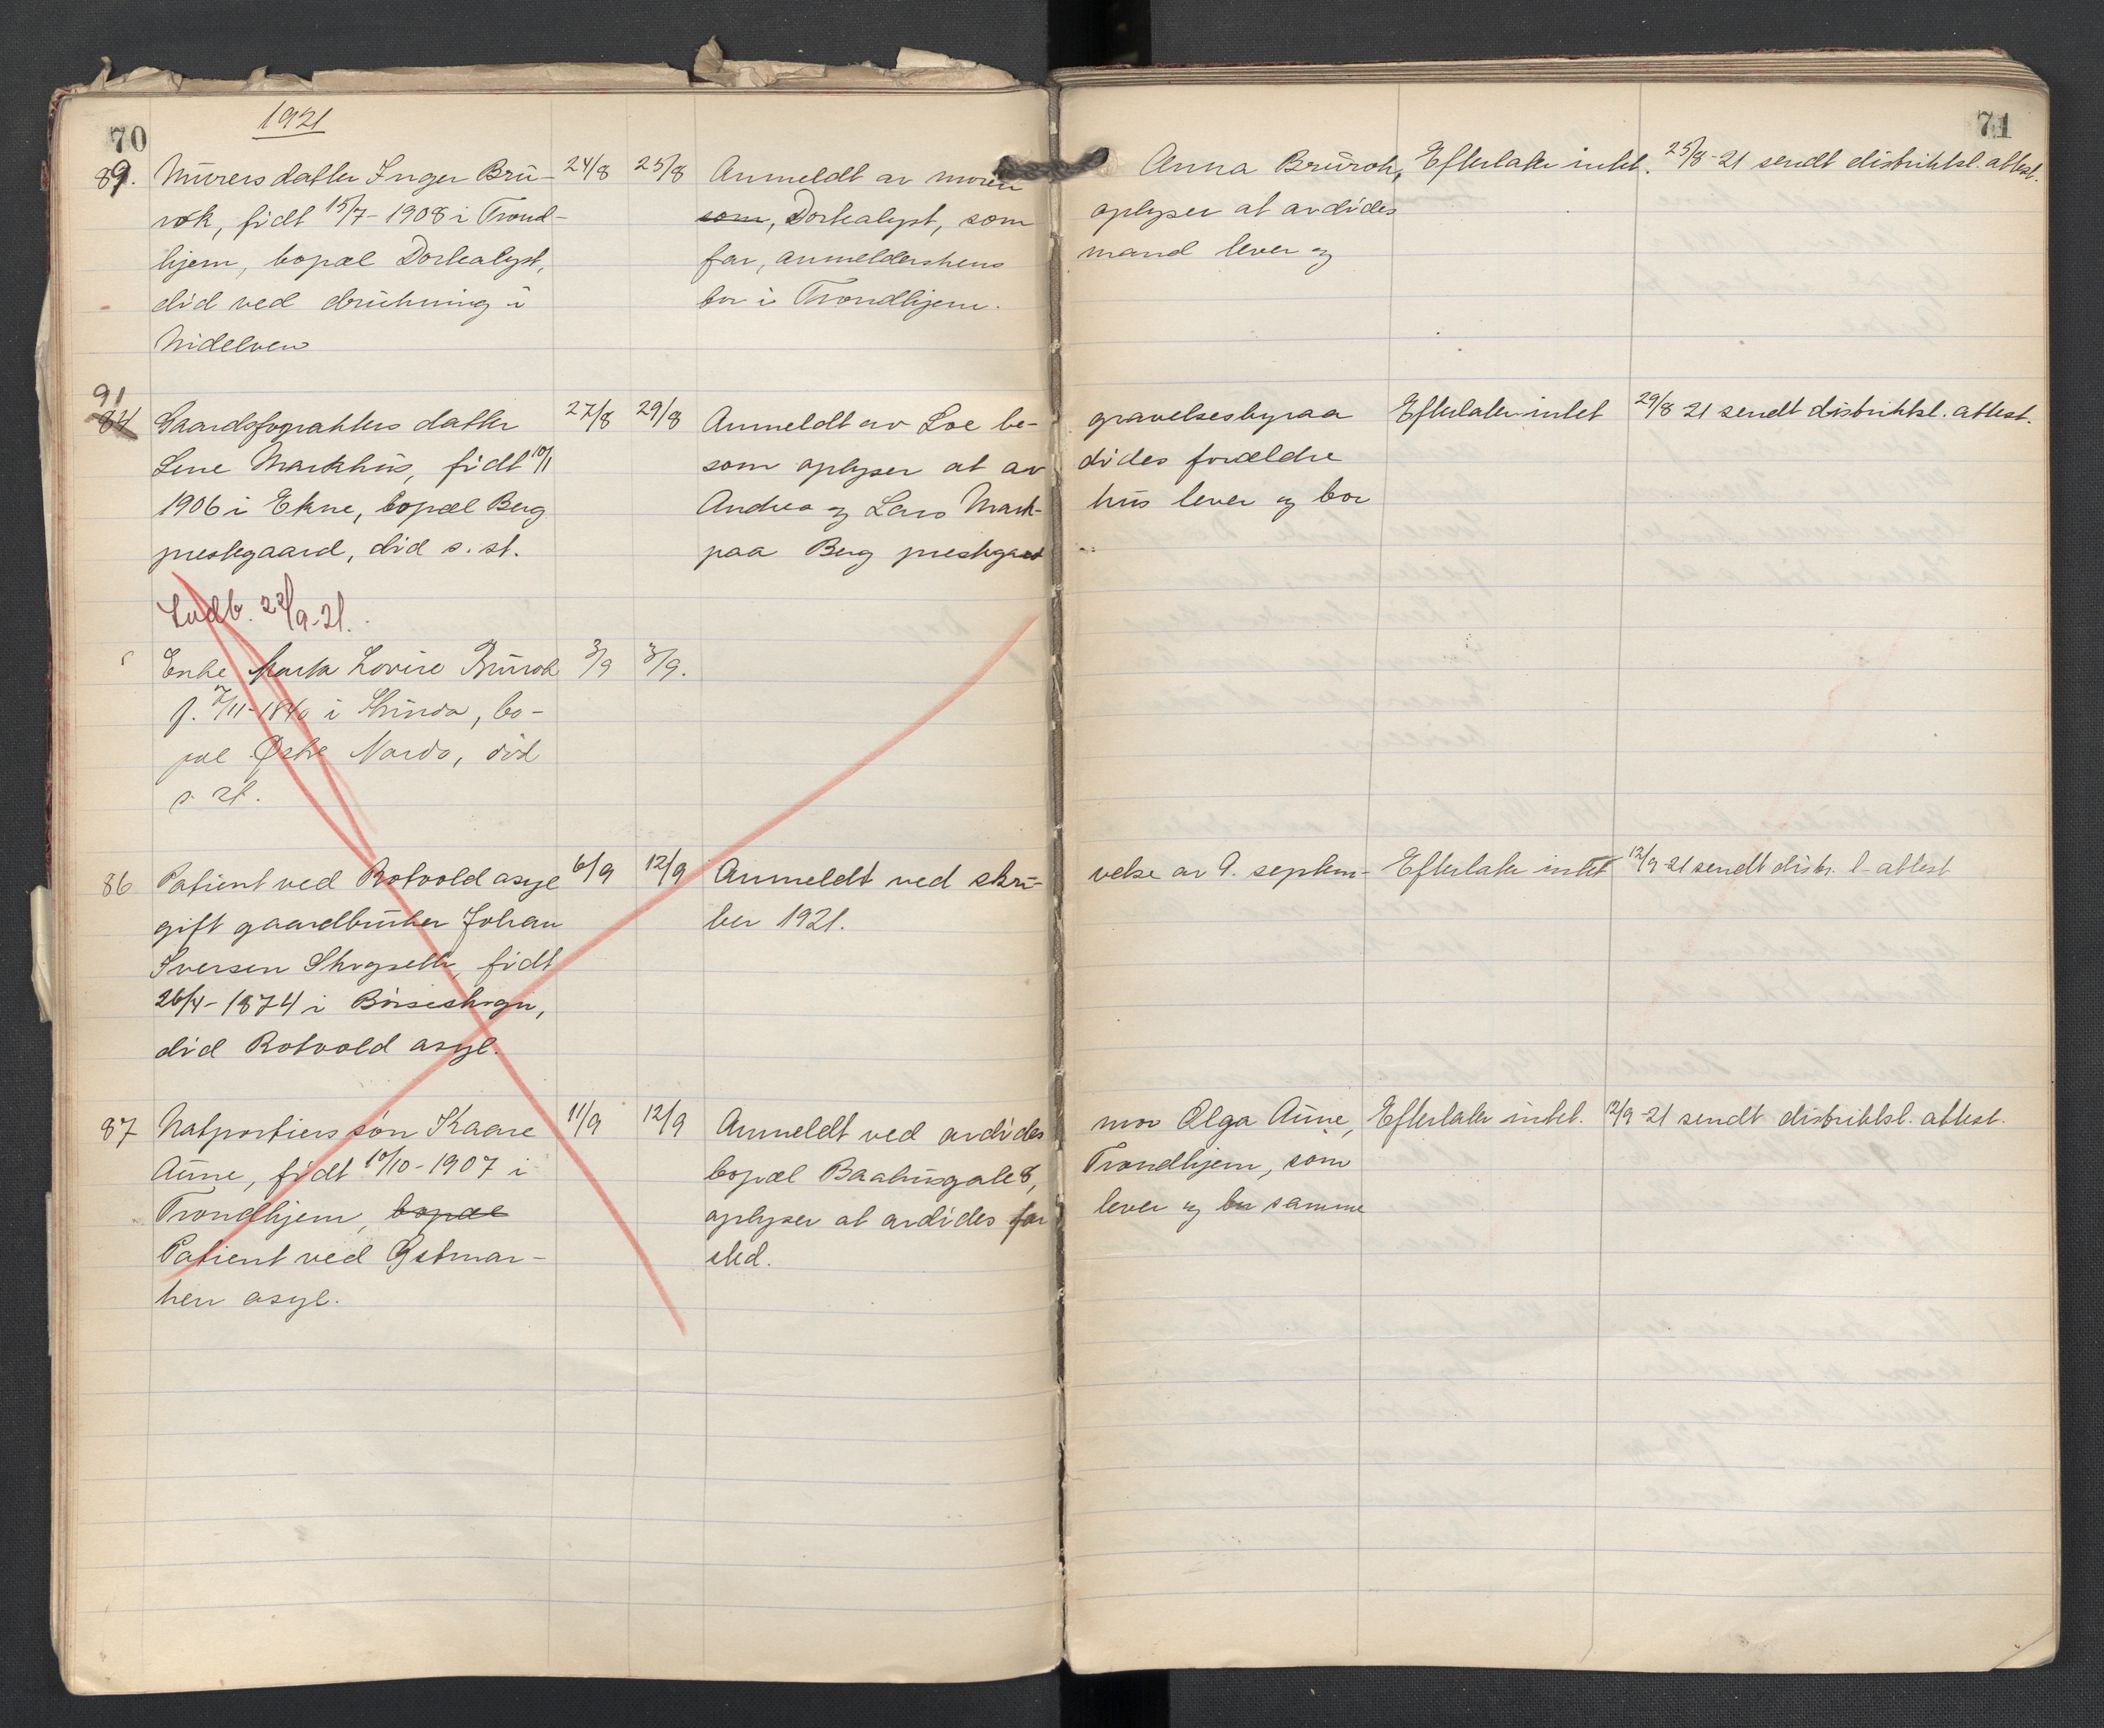 70
1921
89. Murers datter Inger Bru- 24/8 25/8 Anmeldt av moren Anna Brurok, Efterlater intet. 25/8-21 sendt distriktsl. attest.
rok, født 15/7-1908 i Trond- som, Dortealyst, som oplyser at avdødes
hjem, bopæl Dortealyst, far, anmelderskens mand lever og
død ved drukning i bor i Trondhjem.
Nidelven
91
84 Gaardsforpakters datter 27/8 29/8 Anmeldt av Loe be- gravelsesbyraa Efterlater intet 29/8 21 sendt distriktsl. attest.
Lene Markhus, født 10/1 som oplyser at av dødes forældre
1906 i Ekne, bopæl Berg Andrea og Lars Mark- hus lever og bor
prestegaard, død s. st. paa Berg prestegaard
Indb. 22/9-21.
Enke Marta Lovise Brurok 3/9 3/9.
f. 7/11-1840 i Strinda, bo-
pæl Østre Nardo, død
s. st.
86 Patient ved Rotvold asyl 6/9 12/9 Anmeldt ved skri- velse av 9. septem- Efterlater intet 12/9-21 sendt distr. l-attest
gift gaardbruker Johan ber 1921.
Iversen Skogseth, født
26/4-1874 i Børseskogn,
død Rotvold asyl.
87 Natportiers søn Kaare 11/9 12/9 Anmeldt ved avdødes mor Olga Aune, Efterlater intet. 12/9-21 sendt distriktsl. attest.
Aune, født 10/10-1907 i bopæl Baahusgate 8, Trondhjem, som
Trondhjem, bopæl oplyser at avdødes far lever og bor samme
Patient ved Østmar- sted.
ken asyl.
71